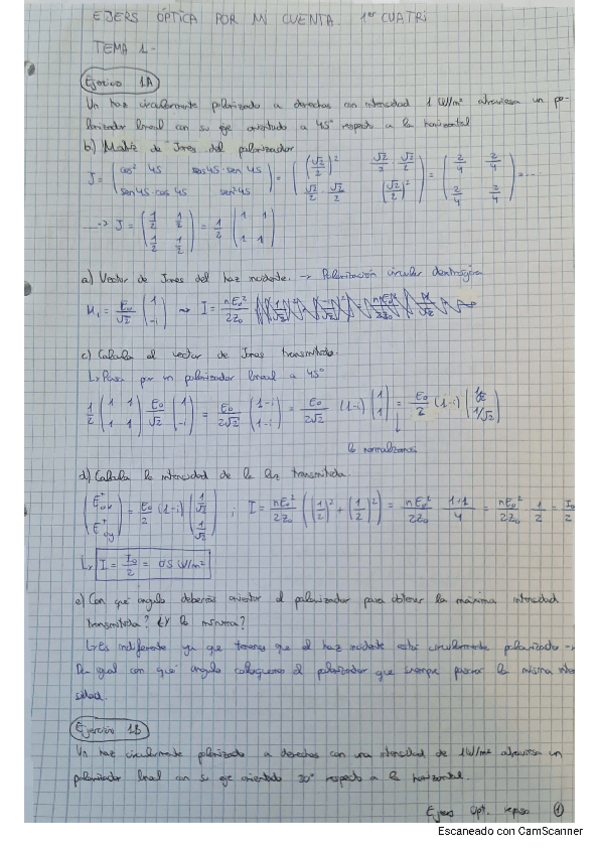 EJERS ÓPTICA POR MI CUENTA. 1er CUATRI
TEMA 1-
Ejercicio 1A
Un haz circularmente polarizado a derechas con intensidad 1 W/m² atraviesa un po-
larizador lineal con su eje orientado a 45° respecto a la horizontal
b) Matriz de Jones del polarizador
J = (cos² 45 cos45·sen 45 / sen45·cos 45 sen²45) = ((√2/2)² √2/2·√2/2 / √2/2·√2/2 (√2/2)²) = (2/4 2/4 / 2/4 2/4) = ...
...→ J = (1/2 1/2 / 1/2 1/2) = 1/2 (1 1 / 1 1)
a) Vector de Jones del haz incidente. → Polarización circular dextrógira
M₁ = E₀/√2 (1 / -i) ⇝ I = nE₀²/2Z₀
c) Calcula el vector de Jones transmitido.
↳ Pasa por un polarizador lineal a 45°
1/2 (1 1 / 1 1) E₀/√2 (1 / -i) = E₀/2√2 (1-i / 1-i) = E₀/2√2 (1-i) (1 / 1) = E₀/2 (1-i) (1/√2 / 1/√2)
lo normalizamos
d) Calcula la intensidad de la luz transmitida
(E⁺ox / E⁺oy) = E₀/2 (1-i) (1/√2 / 1/√2) ; I = nE₀²/2Z₀ ((1/2)² + (1/2)²) = nE₀²/2Z₀ 1+1/4 = nE₀²/2Z₀ · 1/2 = I₀/2
↳ I = I₀/2 = 0'5 W/m²
e) Con qué ángulo deberás orientar el polarizador para obtener la máxima intensidad
transmitida? ¿Y la mínima?
↳ Es indiferente ya que tenemos que el haz incidente está circularmente polarizado →
Da igual con qué ángulo coloquemos el polarizador que siempre pasará la misma inten
sidad.
Ejercicio 1B
Un haz circularmente polarizado a derechas con una intensidad de 1W/m² atraviesa un
polarizador lineal con su eje orientado 30° respecto a la horizontal.
Ejers Opt. repaso 1
Escaneado con CamScanner